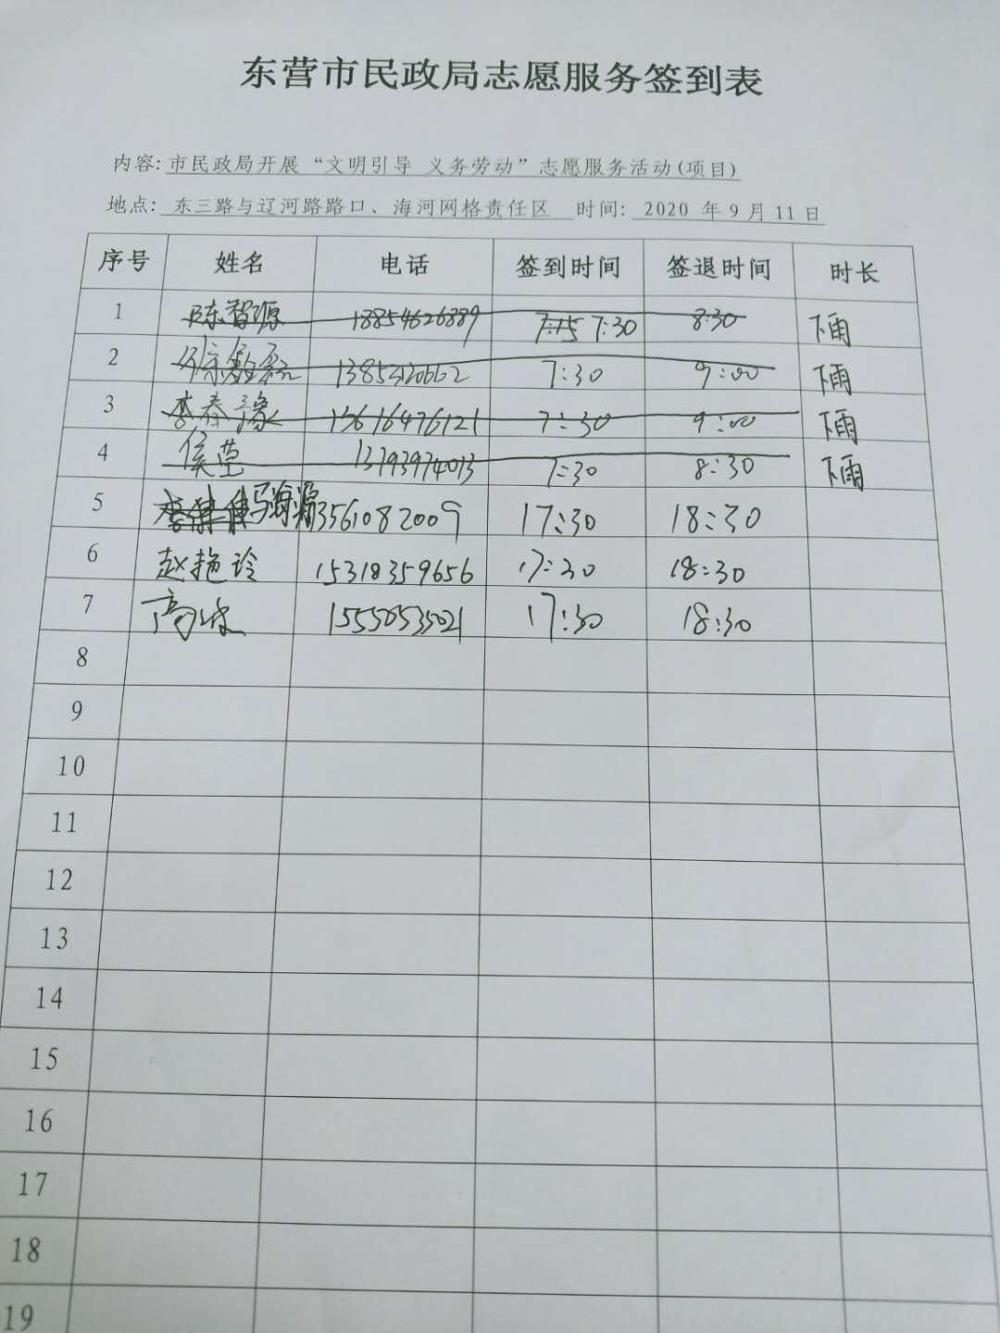 东营市民政局志愿服务签到表
内容: 市民政局开展“文明引导 义务劳动”志愿服务活动(项目)
地点: 东三路与辽河路路口、海河网格责任区 时间: 2020 年 9 月 11 日
序号 姓名 电话 签到时间 签退时间 时长
1 陈智源 18854626889 7:15 7:30 8:30 下雨
2 7:30 9:00 下雨
3 李春豫 15616476121 7:30 9:00 下雨
4 侯莹 13793974013 7:30 8:30 下雨
5 13561082009 17:30 18:30
6 赵艳玲 15318359656 17:30 18:30
7 高波 15550535021 17:30 18:30
8
9
10
11
12
13
14
15
16
17
18
19